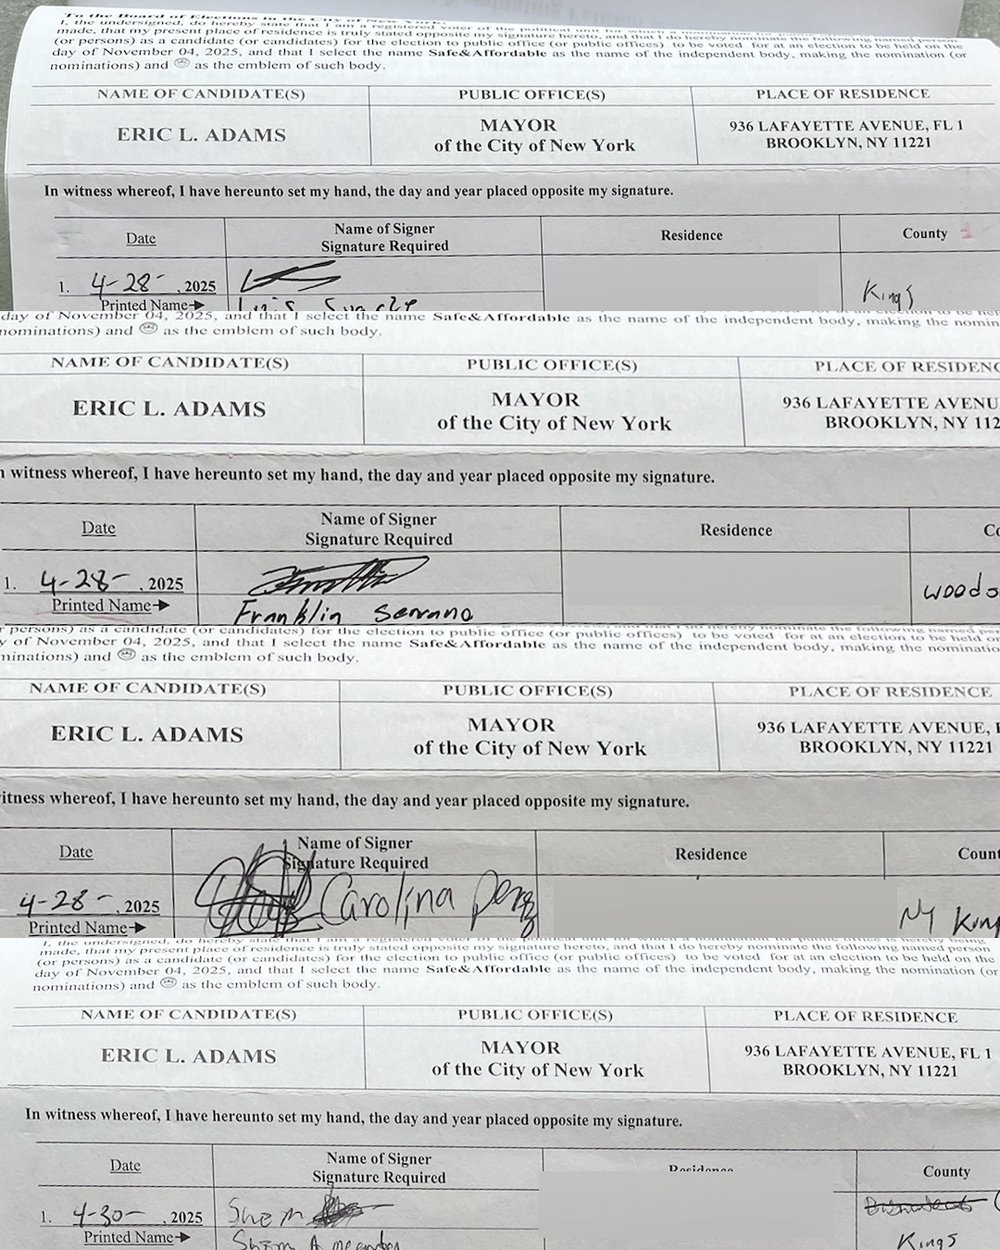 To the Board of Elections in the City of New York:
I, the undersigned, do hereby state that I am a registered voter of the political unit for which a nomination
made, that my present place of residence is truly stated opposite my signature hereto, and that I do hereby nominate the following named person
(or persons) as a candidate (or candidates) for the election to public office (or public offices) to be voted for at an election to be held on the
day of November 04, 2025, and that I select the name Safe&Affordable as the name of the independent body, making the nomination (or
nominations) and as the emblem of such body.
NAME OF CANDIDATE(S) PUBLIC OFFICE(S) PLACE OF RESIDENCE
ERIC L. ADAMS MAYOR of the City of New York 936 LAFAYETTE AVENUE, FL 1 BROOKLYN, NY 11221
In witness whereof, I have hereunto set my hand, the day and year placed opposite my signature.
Date Name of Signer Signature Required Residence County
1. 4-28- , 2025 Kings
Printed Name→
day of November 04, 2025, and that I select the name Safe&Affordable as the name of the independent body, making the nomin
nominations) and as the emblem of such body.
NAME OF CANDIDATE(S) PUBLIC OFFICE(S) PLACE OF RESIDENC
ERIC L. ADAMS MAYOR of the City of New York 936 LAFAYETTE AVENU BROOKLYN, NY 112
n witness whereof, I have hereunto set my hand, the day and year placed opposite my signature.
Date Name of Signer Signature Required Residence Co
1. 4-28- , 2025 woods
Printed Name→ Franklin Serrano
r persons) as a candidate (or candidates) for the election to public office (or public offices) to be voted for at an election to be held on
y of November 04, 2025, and that I select the name Safe&Affordable as the name of the independent body, making the nominatio
minations) and as the emblem of such body.
NAME OF CANDIDATE(S) PUBLIC OFFICE(S) PLACE OF RESIDENCE
ERIC L. ADAMS MAYOR of the City of New York 936 LAFAYETTE AVENUE, BROOKLYN, NY 11221
itness whereof, I have hereunto set my hand, the day and year placed opposite my signature.
Date Name of Signer Signature Required Residence Count
4-28- , 2025 Carolina Perez NY Kin
Printed Name→
I, the undersigned, do hereby state that I am a registered voter of the political unit for which a nomination for public office is hereby being
made, that my present place of residence is truly stated opposite my signature hereto, and that I do hereby nominate the following named person
(or persons) as a candidate (or candidates) for the election to public office (or public offices) to be voted for at an election to be held on the
day of November 04, 2025, and that I select the name Safe&Affordable as the name of the independent body, making the nomination (or
nominations) and as the emblem of such body.
NAME OF CANDIDATE(S) PUBLIC OFFICE(S) PLACE OF RESIDENCE
ERIC L. ADAMS MAYOR of the City of New York 936 LAFAYETTE AVENUE, FL 1 BROOKLYN, NY 11221
In witness whereof, I have hereunto set my hand, the day and year placed opposite my signature.
Date Name of Signer Signature Required Residence County
1. 4-30- , 2025 Shem
Printed Name→ Shem Kings